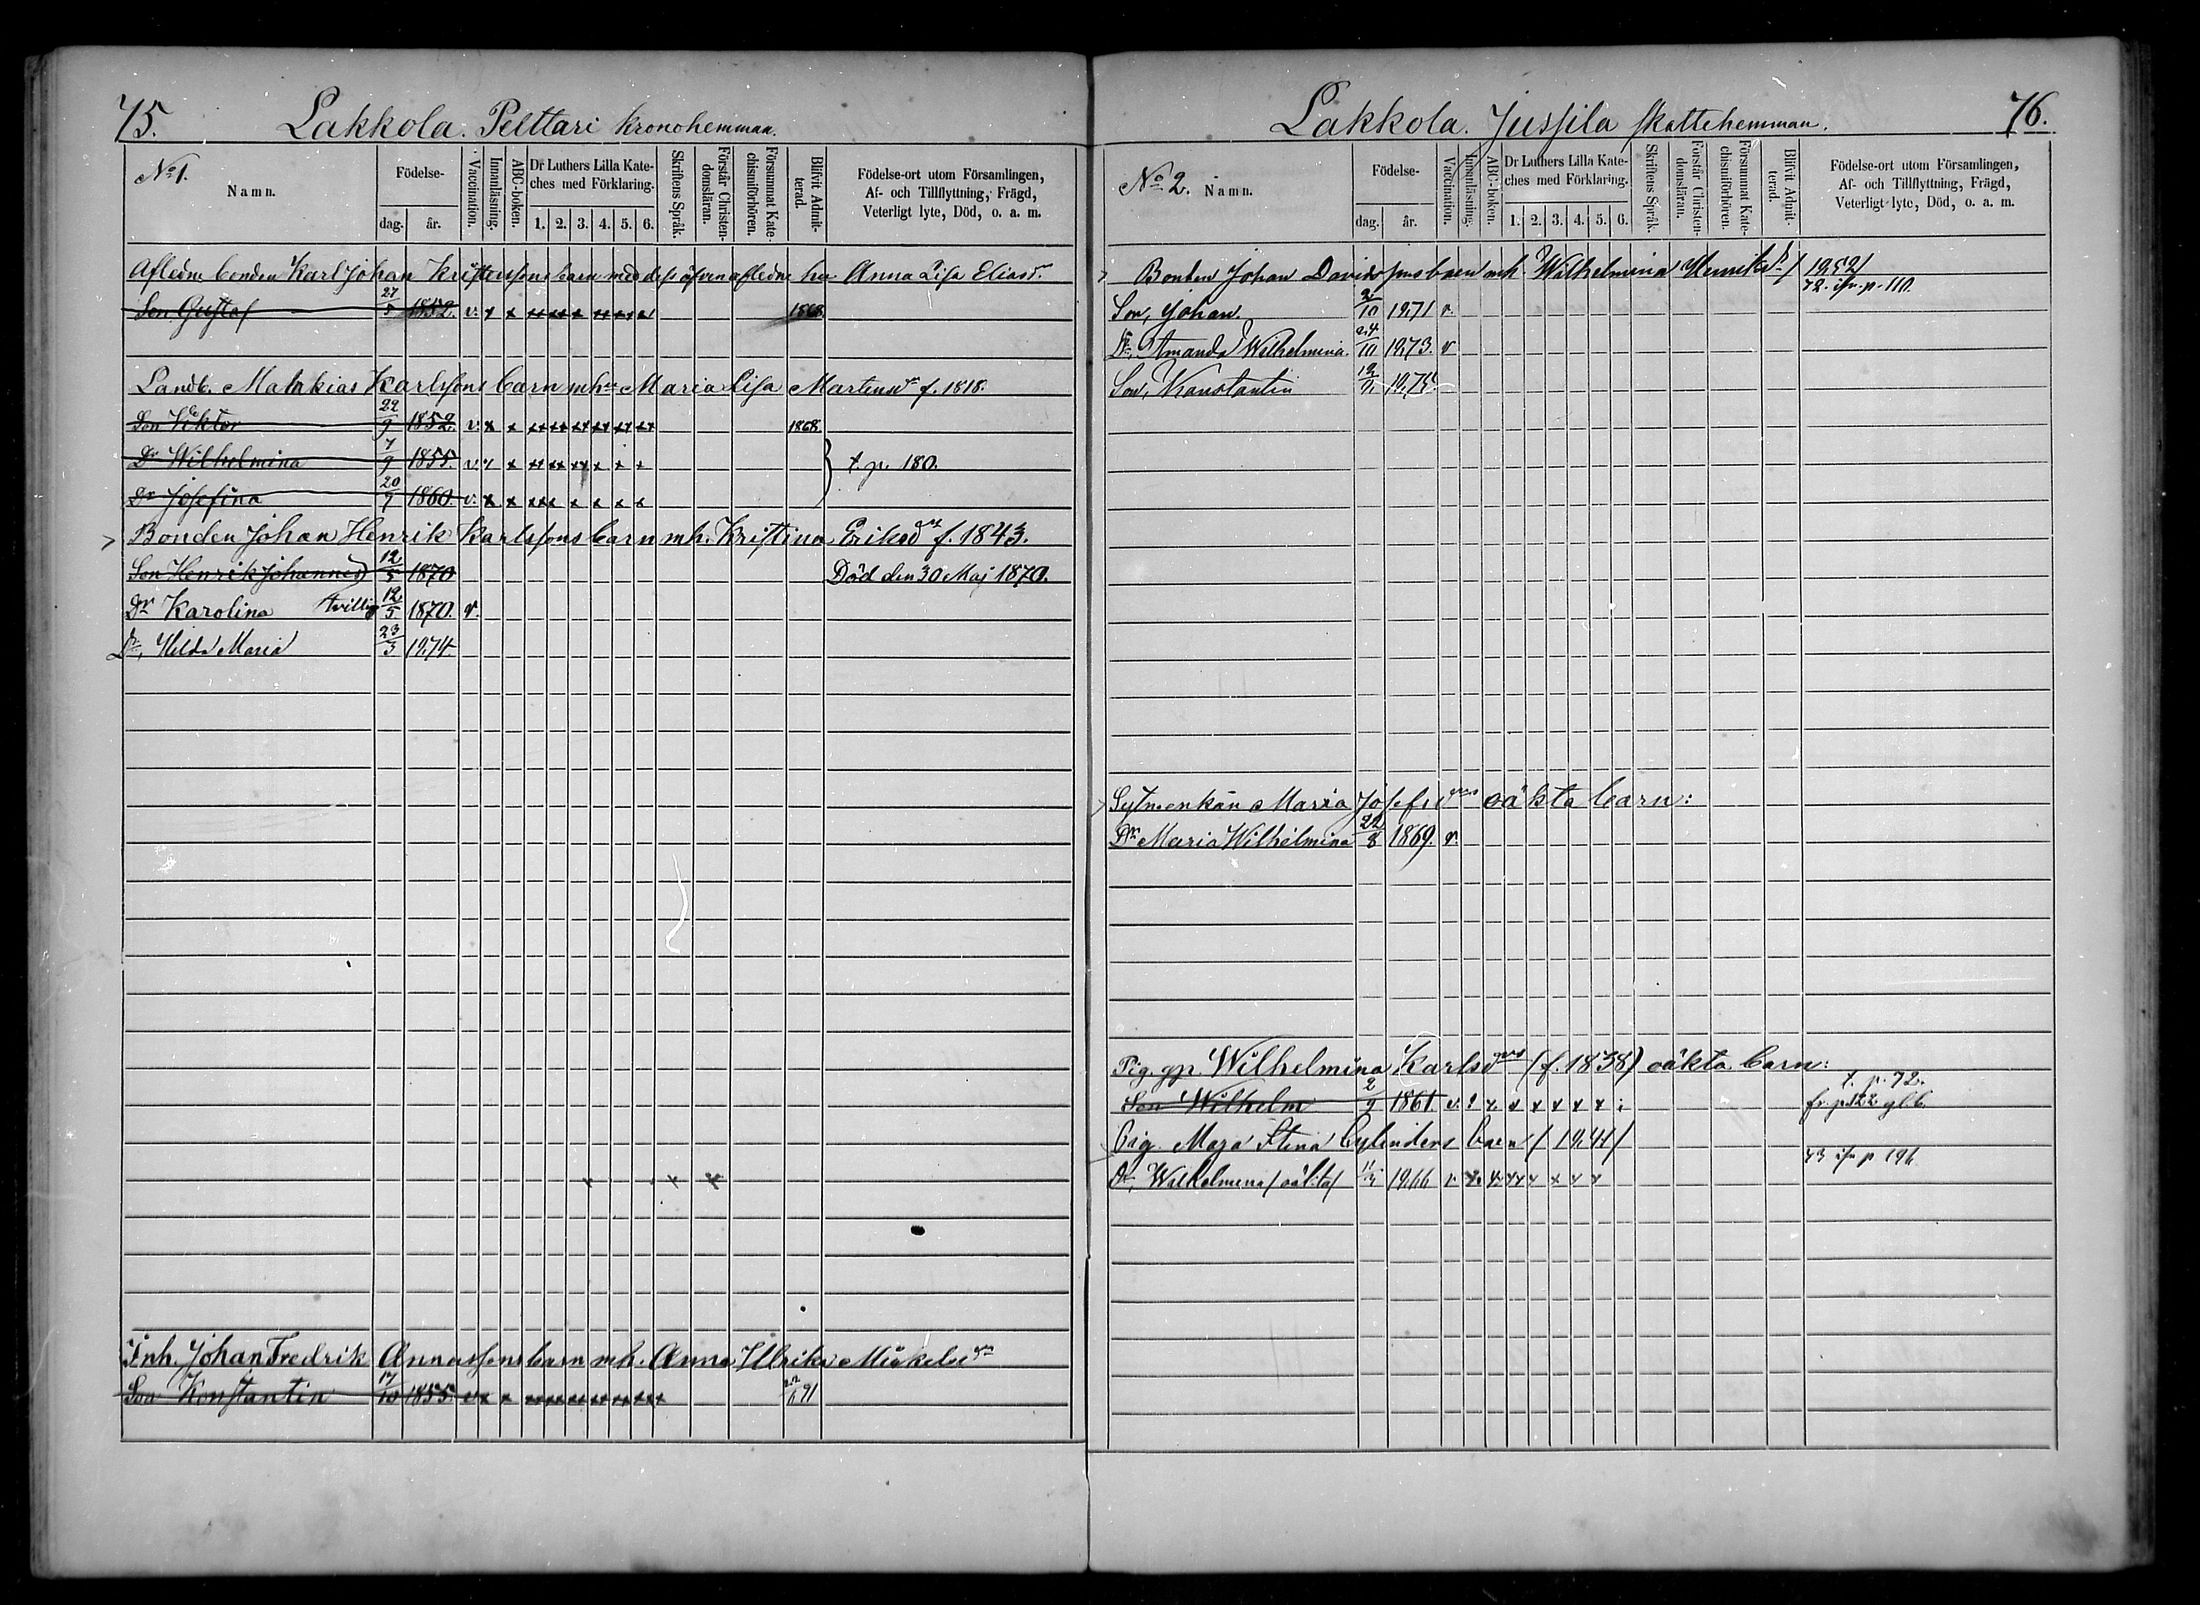 75. Lakkola. Pelttari kronohemman.
No 1.
Namn. Födelse- dag. år. Vaccination. Innanläsning. ABC-boken. Dr Luthers Lilla Kateches med Förklaring. 1. 2. 3. 4. 5. 6. Skriftens Språk. Förstår Christendomsläran. Försummat Katechismiförhören. Blifvit Admitterad. Födelse-ort utom Församlingen, Af- och Tillflyttning, Frägd, Veterligt lyte, Död, o. a. m.
Afledne bonden Karl Johan Kristerssons barn med dess äfven afledne hu Anna Lisa Eliasdr
Son Gustaf 27/5 1852. v. x x xx xx x xx xx x 1868
Landb. Malakias Karlssons barn mhu Maria Lisa Martensdr f. 1818.
Son Viktor 22/9 1852. v. x x xx xx xx xx xx xx 1868
Dr Wilhelmina 7/9 1855. v. x x xx xx xx x x x t. p. 180.
Dr Josefina 20/9 1860. v. x x xx x x x x x
Bonden Johan Henrik Karlssons barn mh. Kristina Eriksdr f. 1843.
Son Henrik Johannes 12/5 1870 Död den 30 Maj 1870.
Dr Karolina tvilling 12/5 1870. v.
Dr, Hilda Maria 23/3 1874.
Inh. Johan Fredrik Annassons barn mh. Anna Ulrika Mickelsdr
Son Konstantin 17/10 1855. v x x xx xx xx xx xx xx 71
Lakkola. Jussila skattehemman. 76.
No 2. Namn. Födelse- dag. år. Vaccination. Innanläsning. ABC-boken. Dr Luthers Lilla Kateches med Förklaring. 1. 2. 3. 4. 5. 6. Skriftens Språk. Förstår Christendomsläran. Försummat Katechismiförhören. Blifvit Admitterad. Födelse-ort utom Församlingen, Af- och Tillflyttning, Frägd, Veterligt lyte, Död, o. a. m.
Bonden Johan Davidssons barn mh. Wilhelmina Henriksdr / 1852/
72. ifr. p. 110.
Son, Johan. 2/10 1871 v.
Dr, Amanda Wilhelmina. 24/10 1873. v
Son, Konstantin 1875.
Sytneenkan Maria Josefsdrs oäkta barn:
Dr Maria Wilhelmina 22/8 1869. v.
Pig. gp. Wilhelmina Karlsdrs (f. 1838) oäkta barn:
t. p. 72.
Son Wilhelm 2/9 1861. v. x x x x x x x fr. p. 122 glb.
Pig Maja Stina Cylinders barn / 1841/
73 ifr p 196
Dr, Wilhelmina /oäkta/ 1866 v. x x x x x x x x